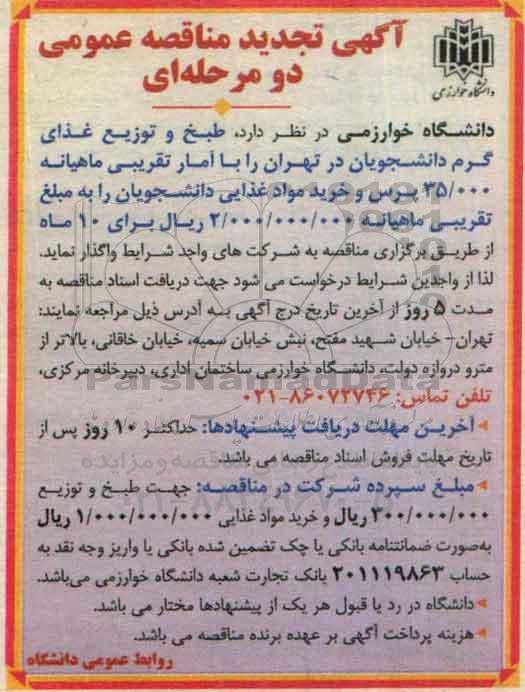 آگهی تجدید مناقصه عمومی
دو مرحله‌ای
دانشگاه خوارزمی
دانشگاه خوارزمی در نظر دارد، طبخ و توزیع غذای
گرم دانشجویان در تهران را با آمار تقریبی ماهیانه
۳۵/۰۰۰ پرس و خرید مواد غذایی دانشجویان را به مبلغ
تقریبی ماهیانه ۲/۰۰۰/۰۰۰/۰۰۰ ریال برای ۱۰ ماه
از طریق برگزاری مناقصه به شرکت های واجد شرایط واگذار نماید.
لذا از واجدین شرایط درخواست می شود جهت دریافت اسناد مناقصه به
مدت ۵ روز از آخرین تاریخ درج آگهی به آدرس ذیل مراجعه نمایند:
تهران- خیابان شهید مفتح، نبش خیابان سمیه، خیابان خاقانی، بالاتر از
مترو دروازه دولت، دانشگاه خوارزمی ساختمان اداری، دبیرخانه مرکزی،
ParsNamadData
تلفن تماس: ۸۶۰۷۲۷۴۶-۰۲۱
آخرین مهلت دریافت پیشنهادها: حداکثر ۱۰ روز پس از
تاریخ مهلت فروش اسناد مناقصه می باشد.
مبلغ سپرده شرکت در مناقصه: جهت طبخ و توزیع
۳۰۰/۰۰۰/۰۰۰ ریال و خرید مواد غذایی ۱/۰۰۰/۰۰۰/۰۰۰ ریال
به‌صورت ضمانتنامه بانکی یا چک تضمین شده بانکی یا واریز وجه نقد به
حساب ۲۰۱۱۱۹۸۶۳ بانک تجارت شعبه دانشگاه خوارزمی می‌باشد.
دانشگاه در رد یا قبول هر یک از پیشنهادها مختار می باشد.
هزینه پرداخت آگهی بر عهده برنده مناقصه می باشد.
روابط عمومی دانشگاه